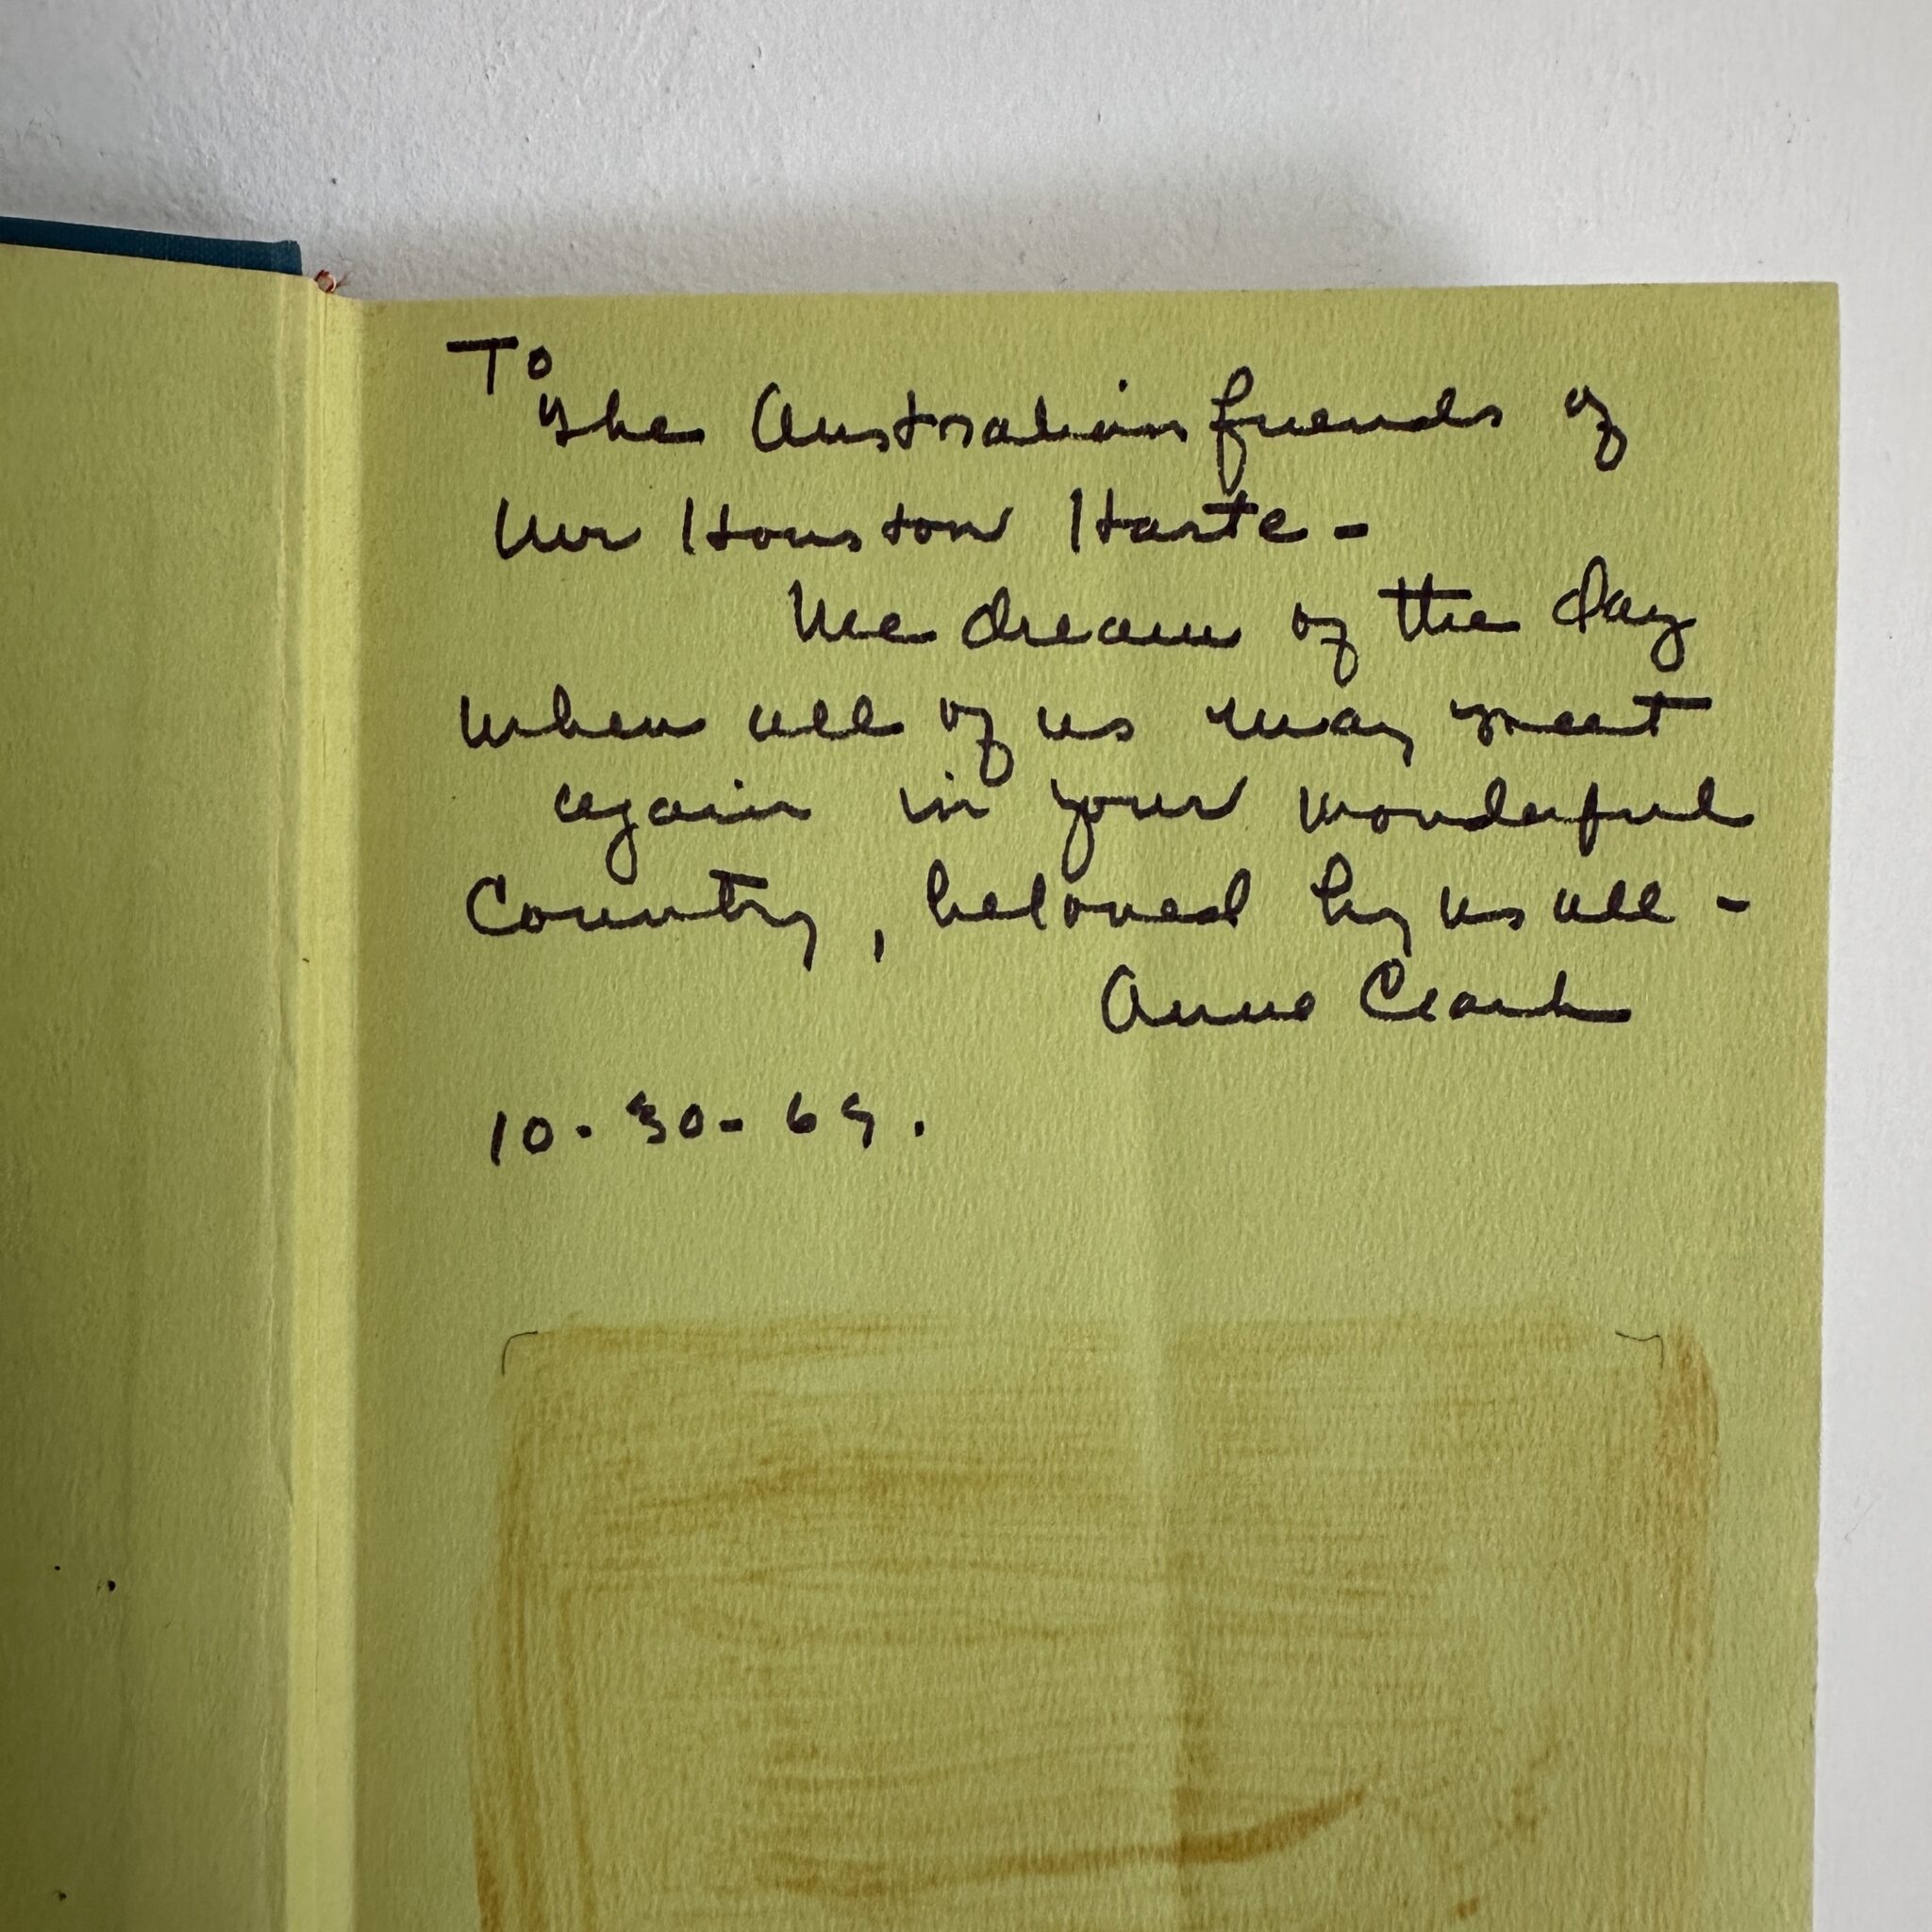 To
The Australian friends of
Mr Houston Harte -
We dream of the day
when all of us may meet
again in your wonderful
Country, beloved by us all -
Anne Clark
10-30-69.